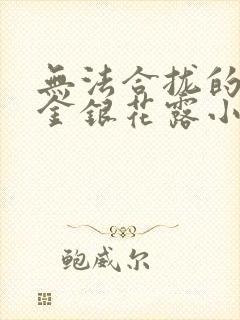 無法合拢的
金銀花露小
鲍威尔